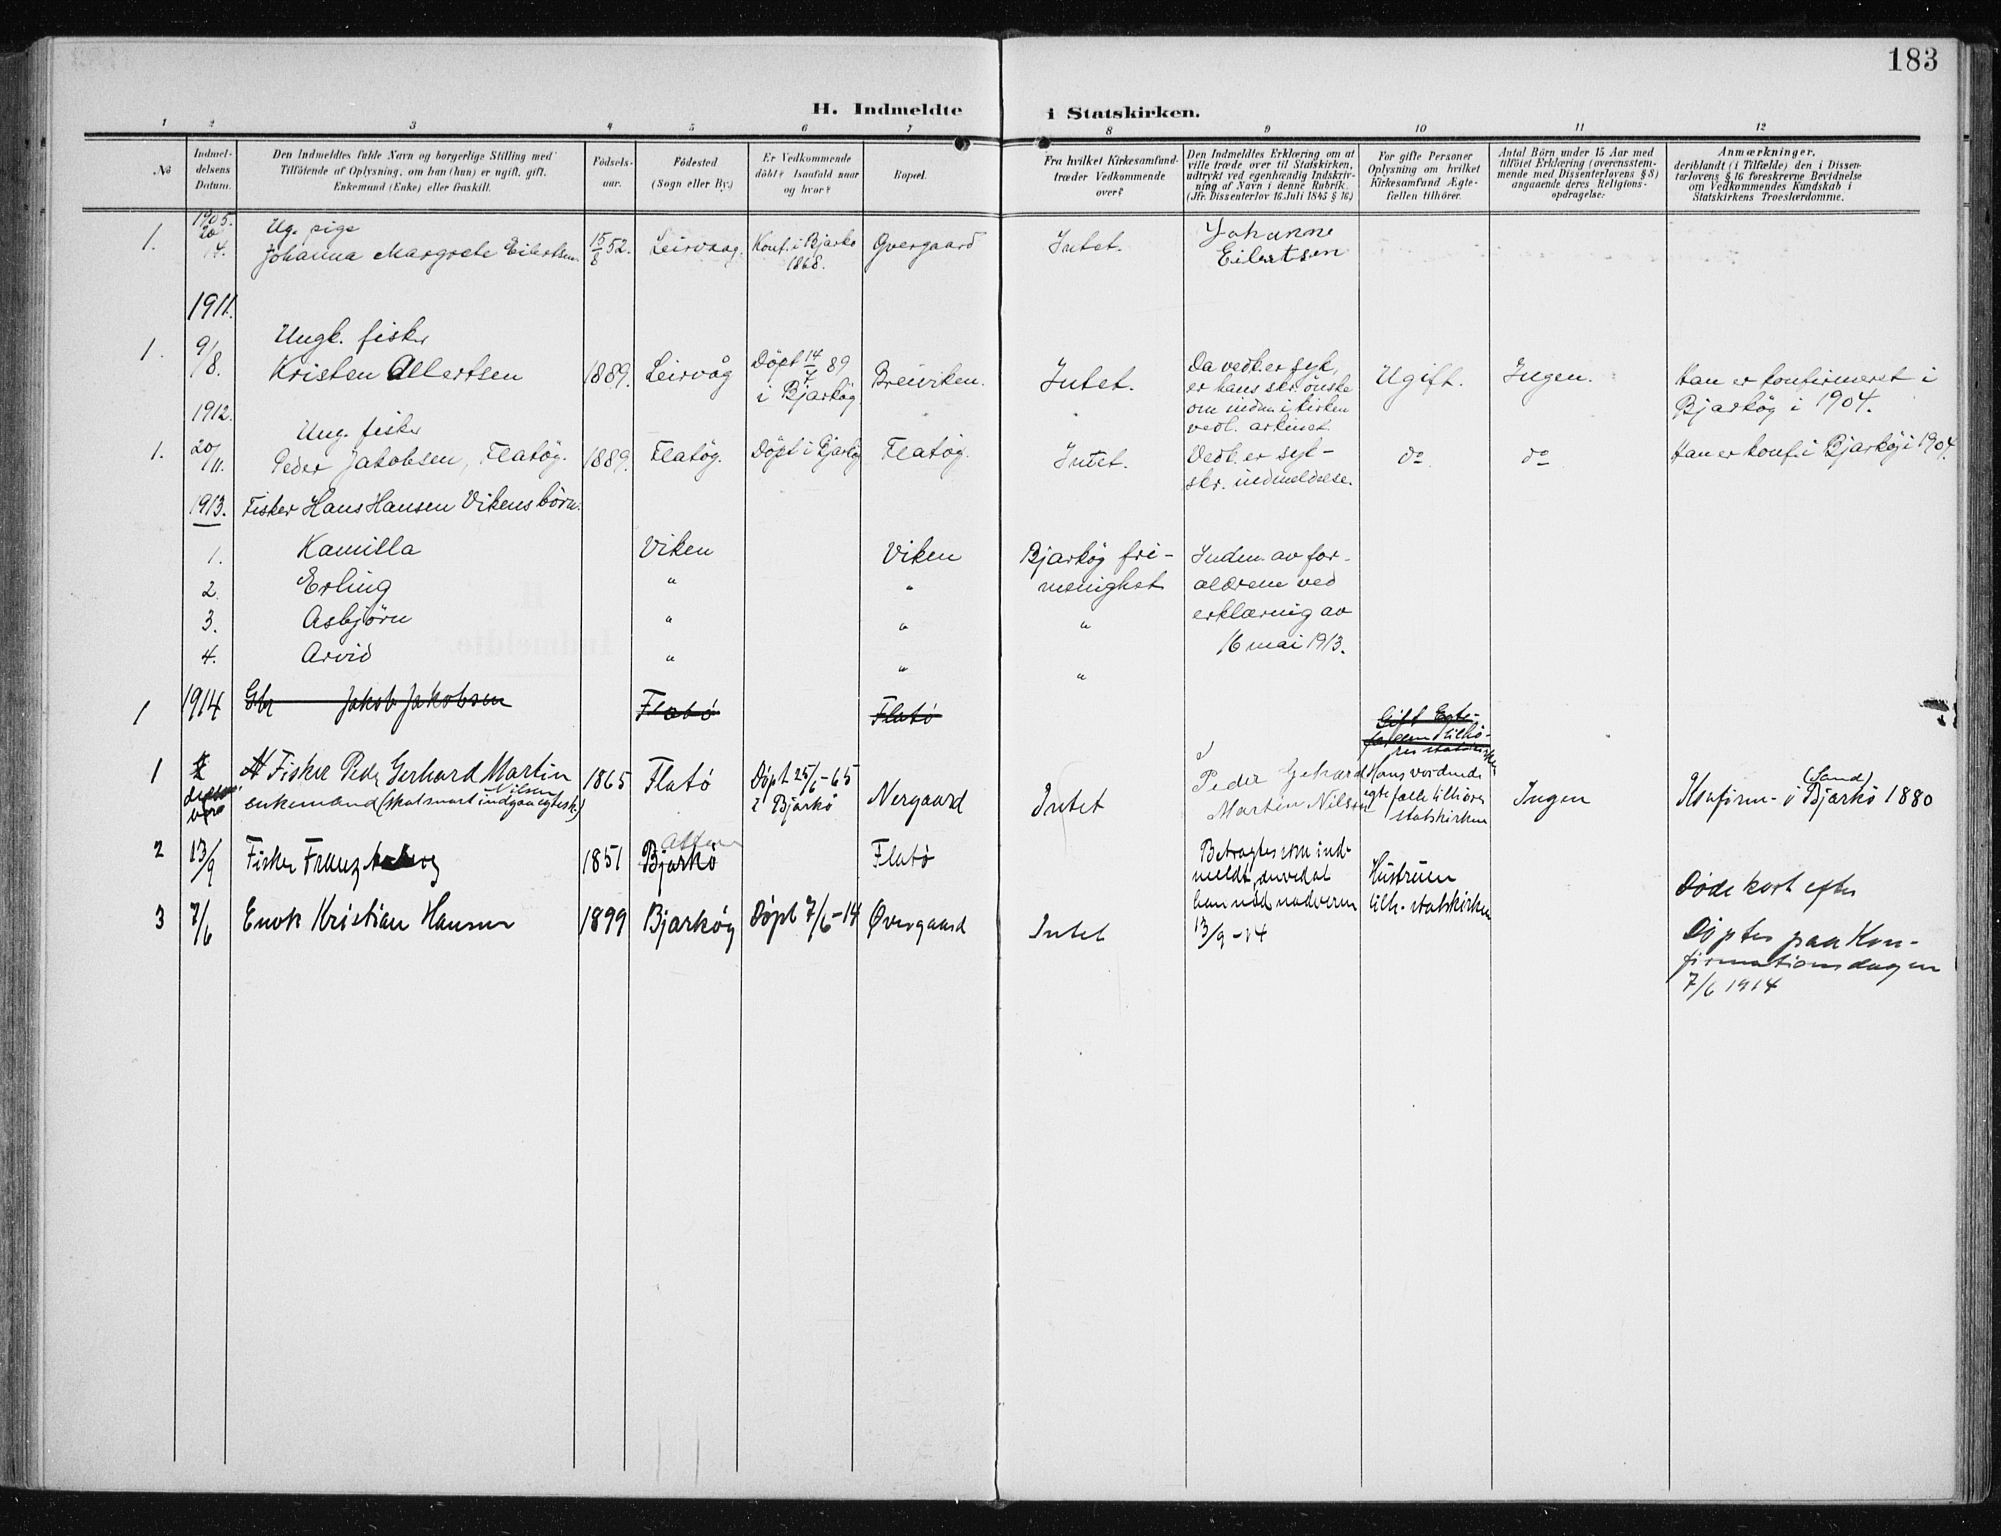 183
H. Indmeldte i Statskirken.
1 2 3 4 5 6 7 8 9 10 11 12
No
Indmel-
delsens
Datum.
Den Indmeldtes fulde Navn og borgerlige Stilling med
Tilföiende af Oplysning, om han (hun) er ugift, gift,
Enkemand (Enke) eller fraskilt.
Födsels-
aar.
Födested
(Sogn eller By.)
Er Vedkommende
döbt? Isaafald naar
og hvor?
Bopæl.
Fra hvilket Kirkesamfund
træder Vedkommende
over?
Den Indmeldtes Erklæring om at
ville træde over til Statskirken,
udtrykt ved egenhændig Indskriv-
ning af Navn i denne Rubrik.
(Jfr. Dissenterlov 16 Juli 1845 § 16.)
For gifte Personer
Oplysning om hvilket
Kirkesamfund Ægte-
fællen tilhörer.
Antal Börn under 15 Aar med
tilföiet Erklæring (overensstem-
mende med Dissenterlovens § 8)
angaaende deres Religions-
opdragelse.
Anmærkninger,
deriblandt (i Tilfælde) den i Dissen-
terlovens § 16 foreskrevne Bevidnelse
om Vedkommendes Kundskab i
Statskirkens Troeslærdomme.
1905.
1. 20/4. Ug. pige
Johanna Margrete Eilertsen 15/8 52. Leirvaag. Konf. i Bjarkø
1868. Øvergaard Intet. Johanne
Eilertsen
1911.
1. 9/8. Ungk. fisker
Kristen Albertsen 1889. Leirvåg Døpt 14/7 89
i Bjarkøy Breiviken. Intet. Da vedk. er syk,
er hans skr. ønske
om indm. i kirken
vedl. arkivet Ugift. Ingen. Han er konfirmeret i
Bjarkøy i 1904.
1912.
1. 20/11. Ung. fisker
Peder Jakobsen, Flatøy. 1889. Flatøy. Døpt i Bjarkøy Flatøy. Intet. Vedl. er
skr. indmeldelse. do do Han er konf. i Bjarkøy i 1904.
1913. Fisker Hans Hansen Vikens børn.
1. Kamilla Viken Viken Bjarkøy fri- Indm. av for-
2. Erling " " menighet ældrene ved
3. Asbjørn " " " erklæring av
4. Arvid " " " 16 mai 1913.
1 1914 Gbr Jakob Jakobsen Flatø Flatø Gift Egte-
tilhø-
res statskirken
1 Fisker Peder Gerhard Martin
Nilsen
enkemand (skal snart indgaa egtesk.) 1865 Flatø Døpt 25/6-65
i Bjarkø Nergaard Intet Peder Gehard
Martin Nilsen Hans vordende
egtefælle tilhører
statskirken Ingen Konfirm. i (Sand) Bjarkø 1880
2 13/9 Fisker Franz 1851 Bjarkø Flatø Betragtes som ind-
meldt, derved at
han nød nadveren
13/9-14 Hustruen
tilh. statskirken Døde kort efter
3 7/6 Enok Kristian Hansen 1899 Bjarkøy Døpt 7/6-14 Øvergaard Intet Døptes paa Kon-
firmationsdagen
7/6 1914